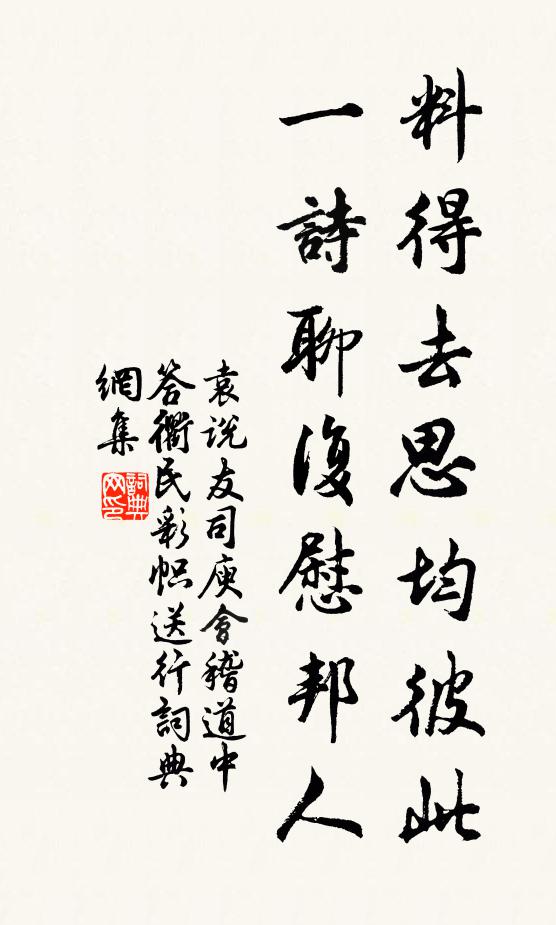 料得去思均彼此
一詩聊復慰邦人
袁说友司庾會稽道中
答衢民彩帜送行詞典
網集
詞典
网印